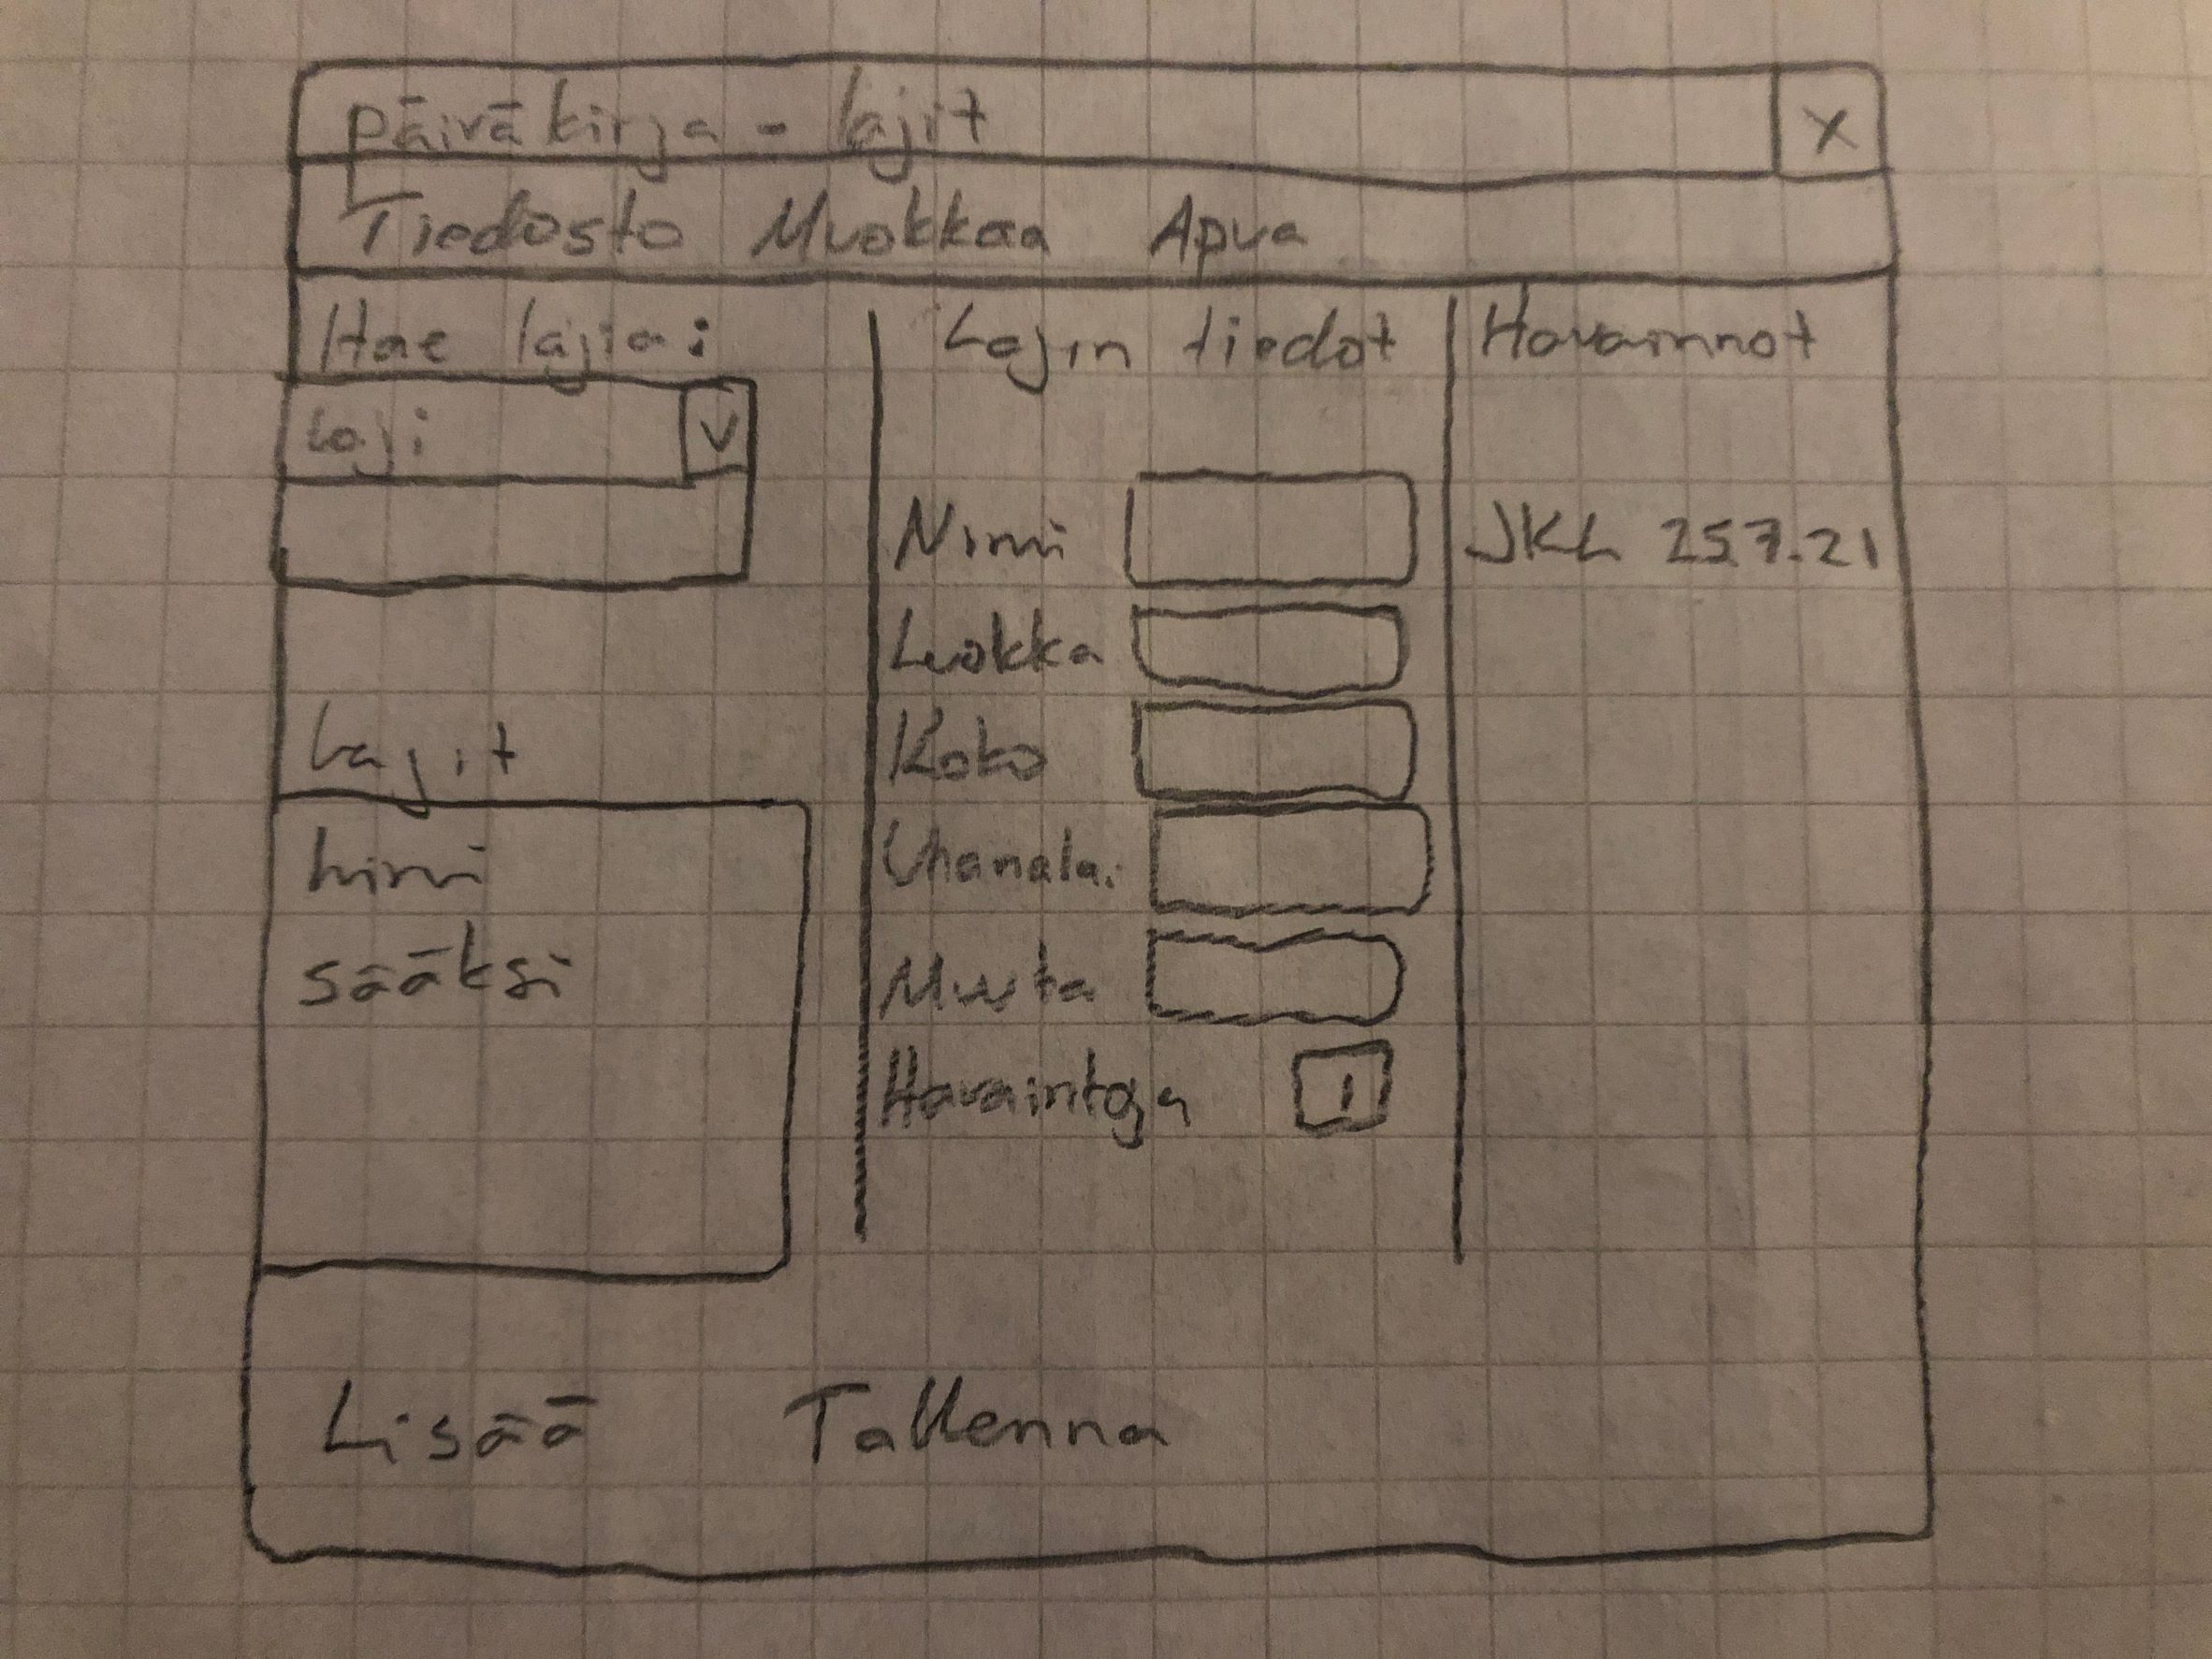 päiväkirja - lajit X
Tiedosto Muokkaa Apua
Hae lajia:
laji V
Lajit
hirvi
sääksi
Lajin tiedot
Nimi
Luokka
Koko
Uhanalai
Muuta
Havaintoja 1
Havainnot
JKL 25.7.21
Lisää Tallenna